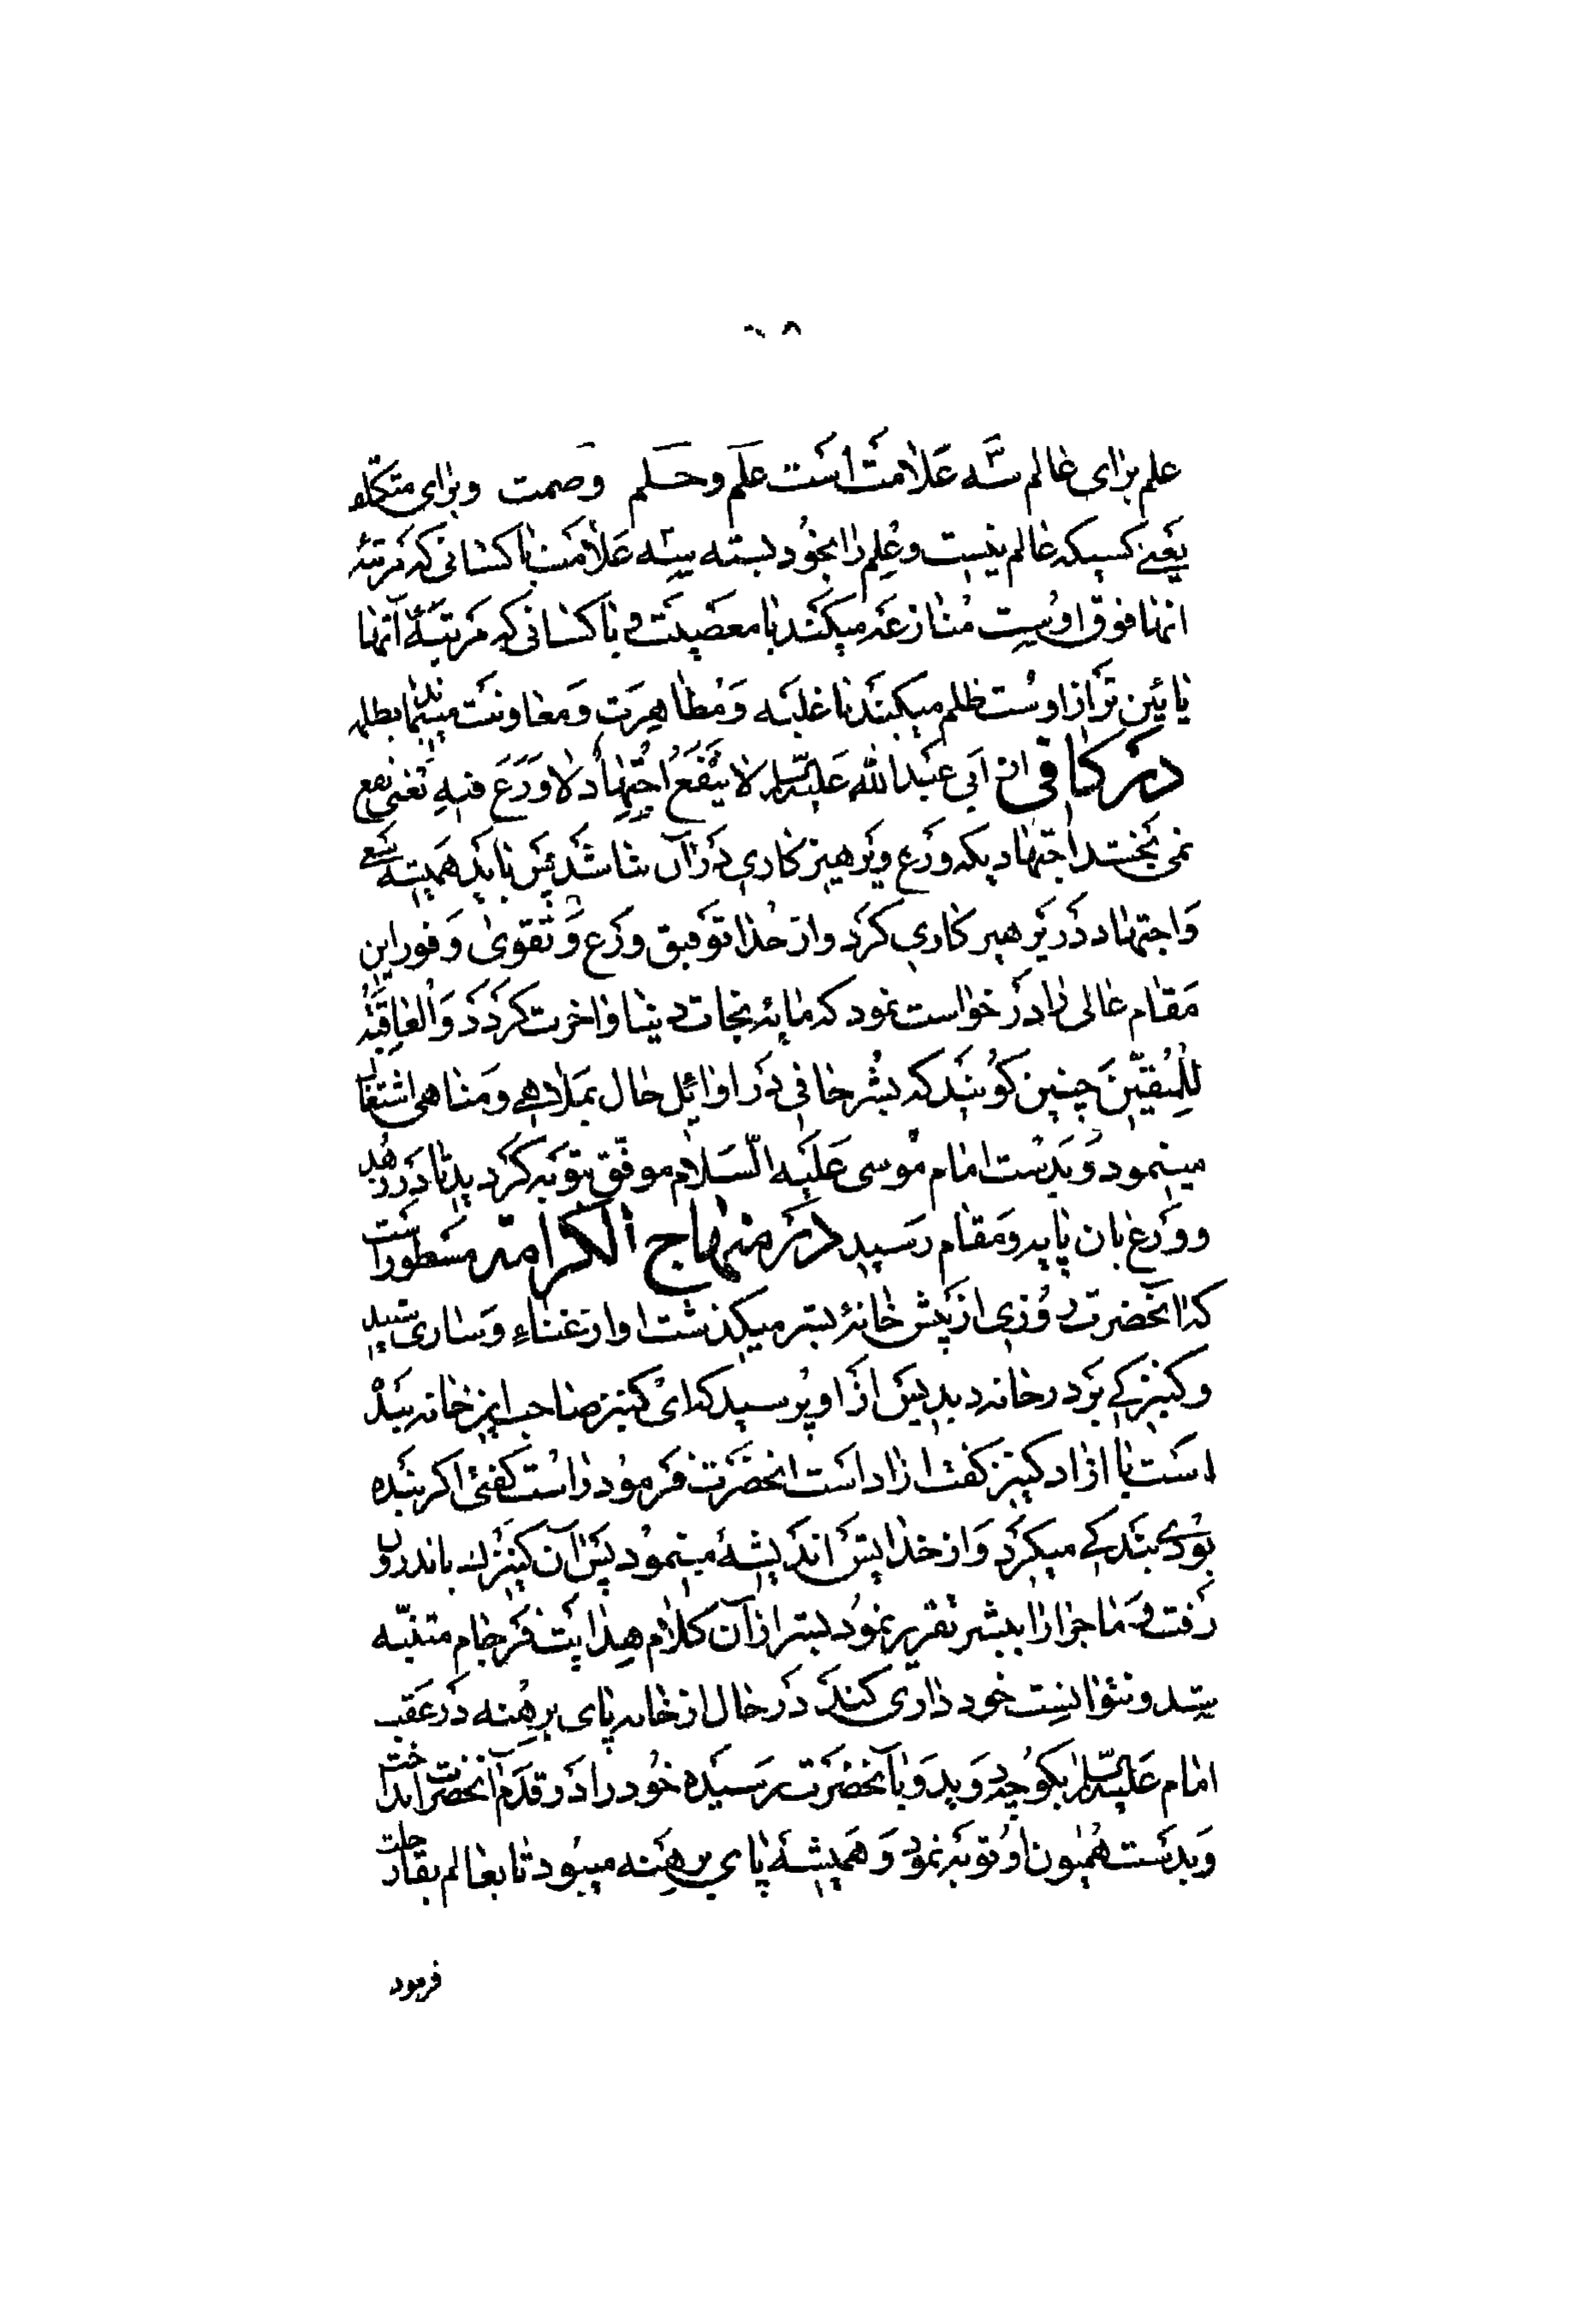 علم برای عالم سَّه عَلامت است علم وحلم وصمت وبرای متکلف
یعنی کسیکه عالم نیست وعلم را بخود بسته سِه عَلامت با کسانی که مرتبهٔ
انها فوق اوست منازعه میکند با معصیت و با کسانی که مرتبهٔ آنها
پائین تر از اوست ظلم میکند با غلبه وَمظاهِرَت وَمعاونت مینماید بظلم
در کافی از ابی عبدالله عَلیه‌السلام لا یَنفَعُ اجتِهادٌ لا وَرَعَ فیهِ یَعنی نفع
نمی بخشد اجتهادیکه ورع وپرهیزکاری در آن نباشد پس باید همیشه سعی
وَاجتهاد در پرهیزکاری کرد واز خدا توفیق ورع وَتقوی وَفور این
مقام عالی را درخواست نمود که مایهٔ نجات دنیا واخرت کردد وَالعاقِبَةُ
لِلمُتَّقینَ چنین کویند که بُشر حافی در اوائِل حال بملاهی ومَناهی اشتغال
مینمود وَبدست امام موسی عَلَیه السَلام موفّق بتوبه کردید تا در زهد
وورع بان پایه ومَقام رسید در منهاج الکرامة مسطور است
که انحضرت روزی از پیش خانهٔ بشر میکذشت اواز غناءِ وَساری شنید
وکنیزکی بر در خانه دید پس از او پرسید که ای کنیز صاحب این خانه بنده
است یا ازاد کنیز کفت ازاد است انحضرت فرمود راست کفتی اکر بنده
بودی بندکی میکرد وَاز خدایش اندیشهٔ مینمود پس آن کنیزک باندرون
رفت وَماجرا را ببشر تقریر نمود بشر از آن کلام هِدایت فرجام متنبّه
شد ونتوانست خود داری کند در حال از خانه پای برهنه در عقب
امام عَلیه‌السلام بکوچه دوید وَبا آنحضرت رسیده خود را در قدم آنحضرت انداخت
وَبدست همیون او توبه نمود وَهمیشهٔ پای برهِنه میبود تا بعالم بقا رحلت
فرمود